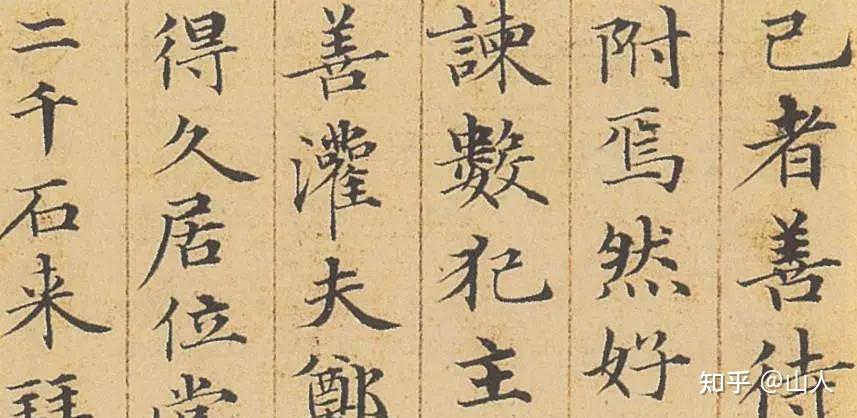 己者善待
附焉然好
諫數犯主
善灌夫鄭
得久居位當
二千石来拜
知乎 @山人